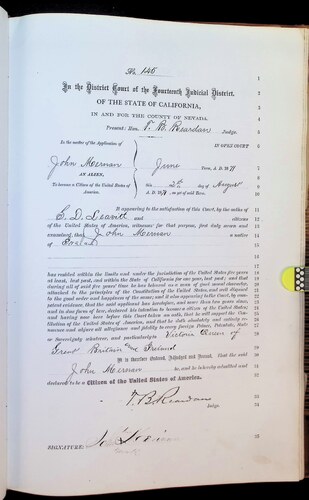 No. 146
In the District Court of the Fourteenth Judicial District,
OF THE STATE OF CALIFORNIA,
IN AND FOR THE COUNTY OF NEVADA.
Present: Hon. T. B. Reardan Judge.
In the matter of the Application of
John Mernan
AN ALIEN,
To become a Citizen of the United States of America.
IN OPEN COURT
June Term, A. D. 18
This day of August
A. D. 18
It appearing to the satisfaction of this Court, by the oaths of
C. D. and citizens
of the United States of America, witnesses for that purpose, first duly sworn and
examined, that John Mernan a native
of Ireland
has resided within the limits and under the jurisdiction of the United States five years
at least, last past, and within the State of California for one year, last past; and that
during all of said five years' time he has behaved as a man of good moral character,
attached to the principles of the Constitution of the United States, and well disposed
to the good order and happiness of the same; and it also appearing to the Court, by com-
petent evidence, that the said applicant has heretofore, and more than two years since,
and in due form of law, declared his intention to become a citizen of the United States;
and having now here before this Court taken an oath, that he will support the Con-
stitution of the United States of America, and that he doth absolutely and entirely re-
nounce and abjure all allegiance and fidelity to every foreign Prince, Potentate, State
or Sovereignty whatever, and particularly to Victoria Queen of
Great Britain and Ireland
It is therefore Ordered, Adjudged and Decreed, That the said
John Mernan be, and he is hereby admitted and
declared to be a Citizen of the United States of America.
T. B. Reardan
Judge.
SIGNATURE: